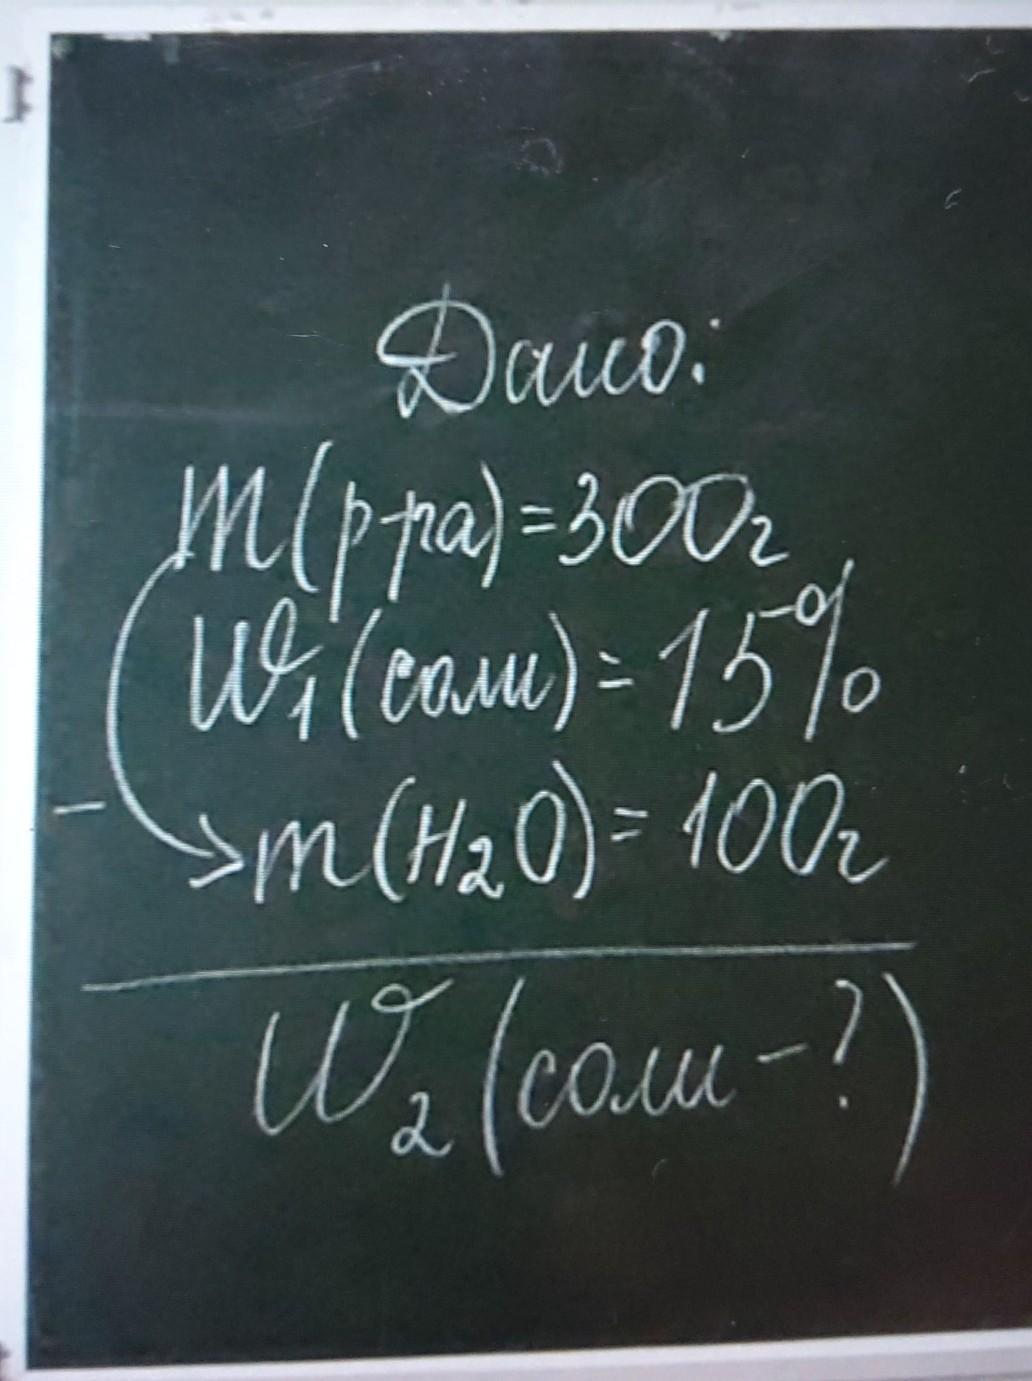 Дано:
m(р-ра)=300г
W₁(соли)=15%
- →m(H₂O)=100г
W₂(соли-?)